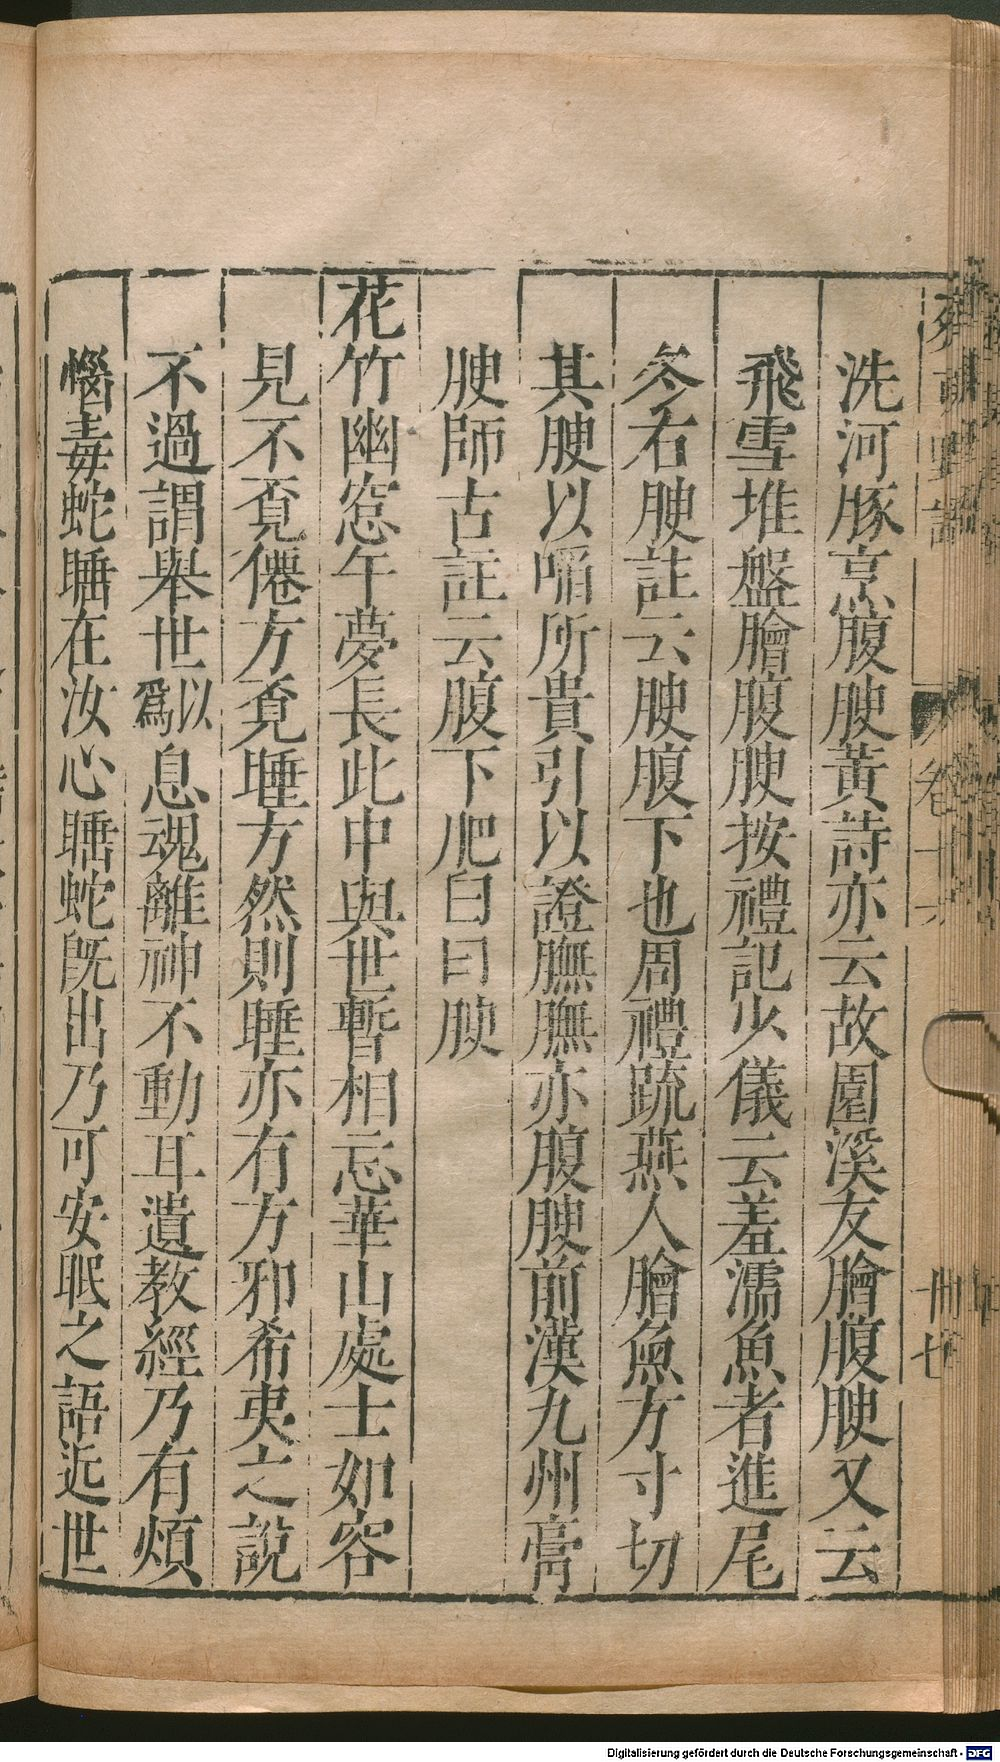 洗河豚烹腹腴黃詩亦云故園溪友膾腹腴又云
飛雪堆盤膾腹腴按禮記少儀云羞濡魚者進尾
冬右腴註云腴腹下也周禮疏燕人膾魚方寸切
其腴以啗所貴引以證膴膴亦腹腴前漢九州膏
腴師古註云腹下肥白曰腴
花竹幽窓午夢長此中與世暫相忘華山處士如容
見不覓僊方覓睡方然則睡亦有方邪希夷之說
不過謂舉世以爲息魂離神不動耳遺教經乃有煩
惱毒蛇睡在汝心睡蛇旣出乃可安眠之語近世
卷十六
卅七
Digitalisierung gefördert durch die Deutsche Forschungsgemeinschaft - DFG